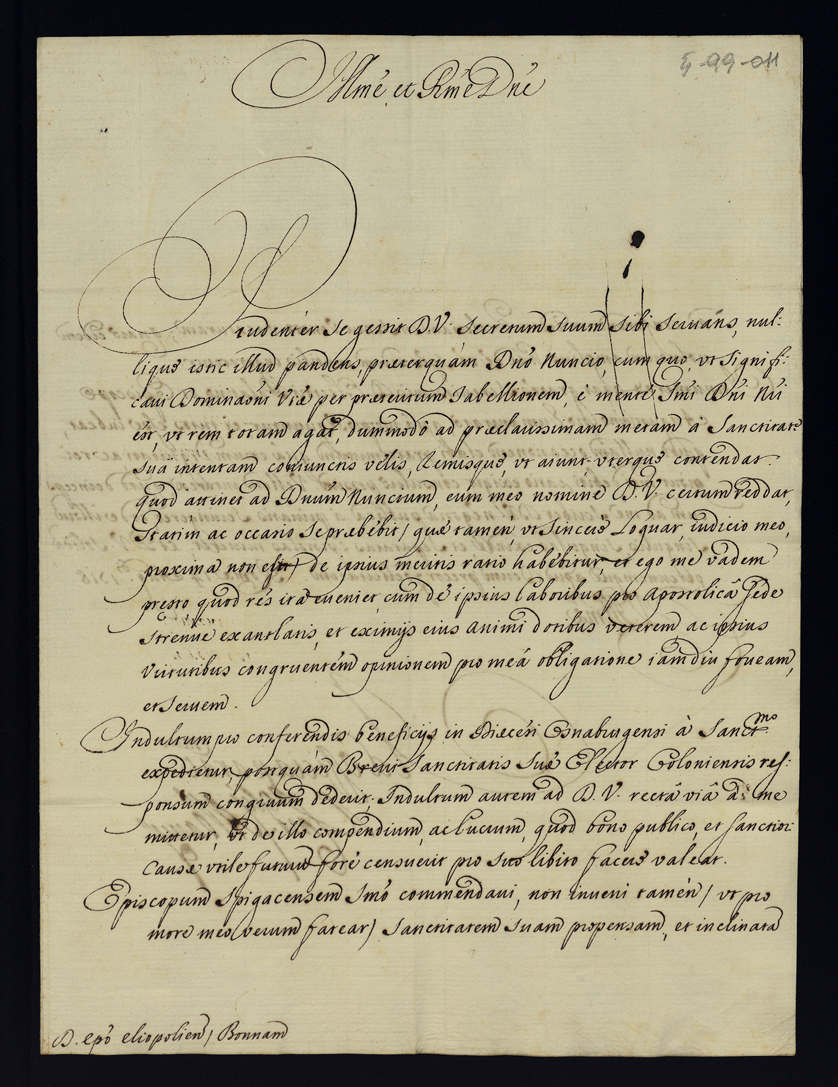 5-99-011
Illmé et Rmé Dné
Prudentér se gessit D.V. Secretum suum sibi servans, nul:
lique istic illud pandens, præterquám Dno Nuncio, cum quo, vt Signifi:
cavi Dominaoni Vræ per præteritum Tabellionem, é menté Smi Dni Nri
ést, vt rem totam agat, dummodó ad præclarissimam metam á Sanctitate
suâ intentam coniunctis vélis, Remisque, vt aiunt vterque contendat.
quod attinet ad Dnum Nuncium, eum meo nomine D.V. certum reddat,
statim ac occasio se præbébit / quæ tamén, vt sinceré Loquar, iudicio meo,
proxima non erit / de ipsius meritis ratio habébitur, et ego me vádem
presto quod rés ita eveniet, cum dé ipsius laboribus pro Apostolicâ Sede
strenué exantlatis, et eximijs eius animi dotibus veterem ac ipsius
Virtutibus congruentém opinionem pro meâ obligatione iamdiu foveam,
et servem.
Indultum pro conferendis beneficijs in Diæcési Osnabrugensi à Sanctmo
expedietur, postquám Brevi Sanctitatis Suæ Elector Coloniensis res:
ponsum congruum dederit; Indultum autem ad D.V. rectâ viâ á me
mittetur, vt de illo compendium, ac lucrum, quod bono publico, et sanctiori
Causæ vtile futurum foré censuerit pro suo libito facere valeat.
Episcopum Spigacensem Smo commendavi, non inveni tamén / vt pro
more meo verum fatear / Sanctitatem suam propensam, et inclinatã
D. Epo Eliopolien / Bonnam